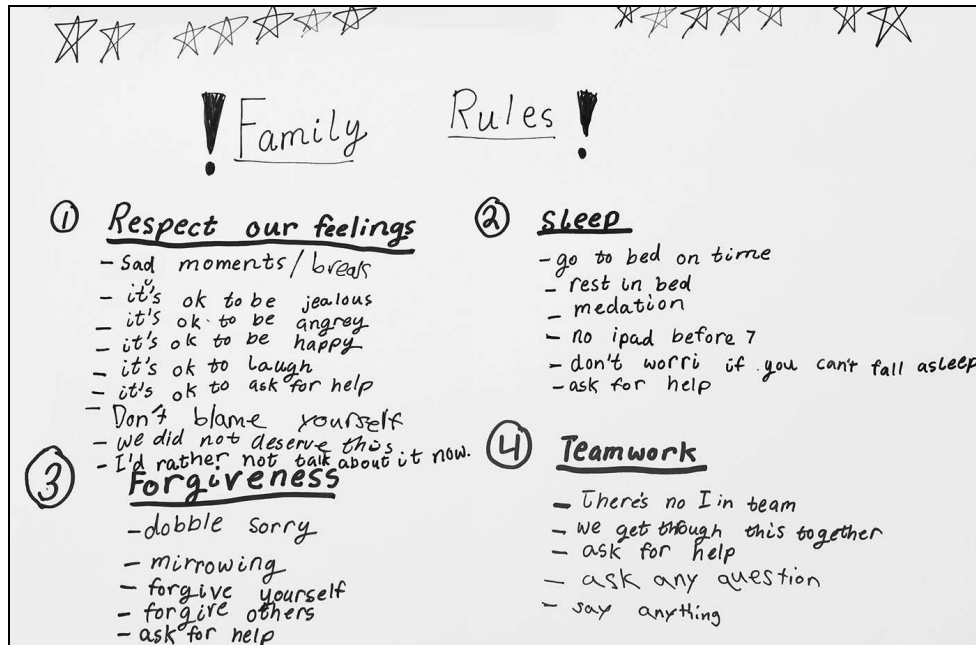 ! Family Rules !
① Respect our feelings
- Sad moments / break
- it's ok to be jealous
- it's ok to be angrey
- it's ok to be happy
- it's ok to laugh
- it's ok to ask for help
- Don't blame yourself
- we did not deserve this
- I'd rather not talk about it now.
② Sleep
- go to bed on time
- rest in bed
- medation
- no ipad before 7
- don't worri if you can't fall asleep
- ask for help
③ Forgiveness
- dobble sorry
- mirrowing
- forgive yourself
- forgive others
- ask for help
④ Teamwork
- There's no I in team
- we get though this together
- ask for help
- ask any question
- say anything